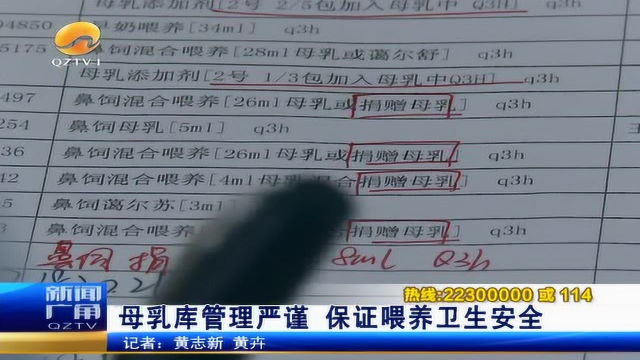 母乳添加剂[2号 2/5包加入母乳中 Q3H]
94850 早奶喂养[34ml] q3h
5175 鼻饲混合喂养[28ml母乳或蔼尔舒] q3h
母乳添加剂[2号 1/3包加入母乳中Q3H]
497 鼻饲混合喂养[26ml母乳或捐赠母乳] q3h
254 鼻饲母乳[5ml] q3h
36 鼻饲混合喂养[26ml母乳或捐赠母乳] q3h
42 鼻饲混合喂养[4ml母乳混合捐赠母乳] q3h
鼻饲蔼尔苏[3ml]
3 鼻饲混合喂养 捐赠母乳] q3h
鼻饲 捐 8ml Q3h
QZTV-1
热线:22300000 或 114
新闻广角
QZTV
母乳库管理严谨 保证喂养卫生安全
记者：黄志新 黄卉